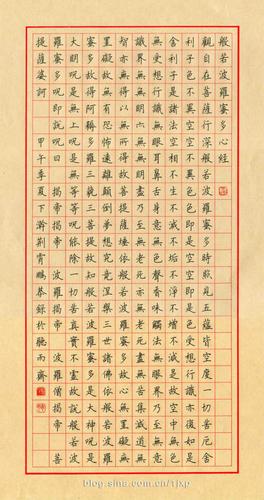 般若波羅蜜多心經
觀自在菩薩行深般若波羅蜜多時照見五蘊皆空度一切苦厄舍
利子色不異空空不異色色即是空空即是色受想行識亦復如是
舍利子是諸法空相不生不滅不垢不淨不增不減是故空中無色
無受想行識無眼耳鼻舌身意無色聲香味觸法無眼界乃至無意
識界無無明亦無無明盡乃至無老死亦無老死盡無苦集滅道無
智亦無得以無所得故菩提薩埵依般若波羅蜜多故心無罣礙無
罣礙故無有恐怖遠離顛倒夢想究竟涅槃三世諸佛依般若波羅
蜜多故得阿耨多羅三藐三菩提故知般若波羅蜜多是大神呪是
大明呪是無上呪是無等等呪能除一切苦真實不虛故說般若波
羅蜜多呪即說呪曰 揭帝揭帝 波羅揭帝 波羅僧揭帝 菩
提薩婆訶 甲午季夏下瀚荊霄鵬恭錄於聽雨齋
blog.sina.com.cn/tjxp